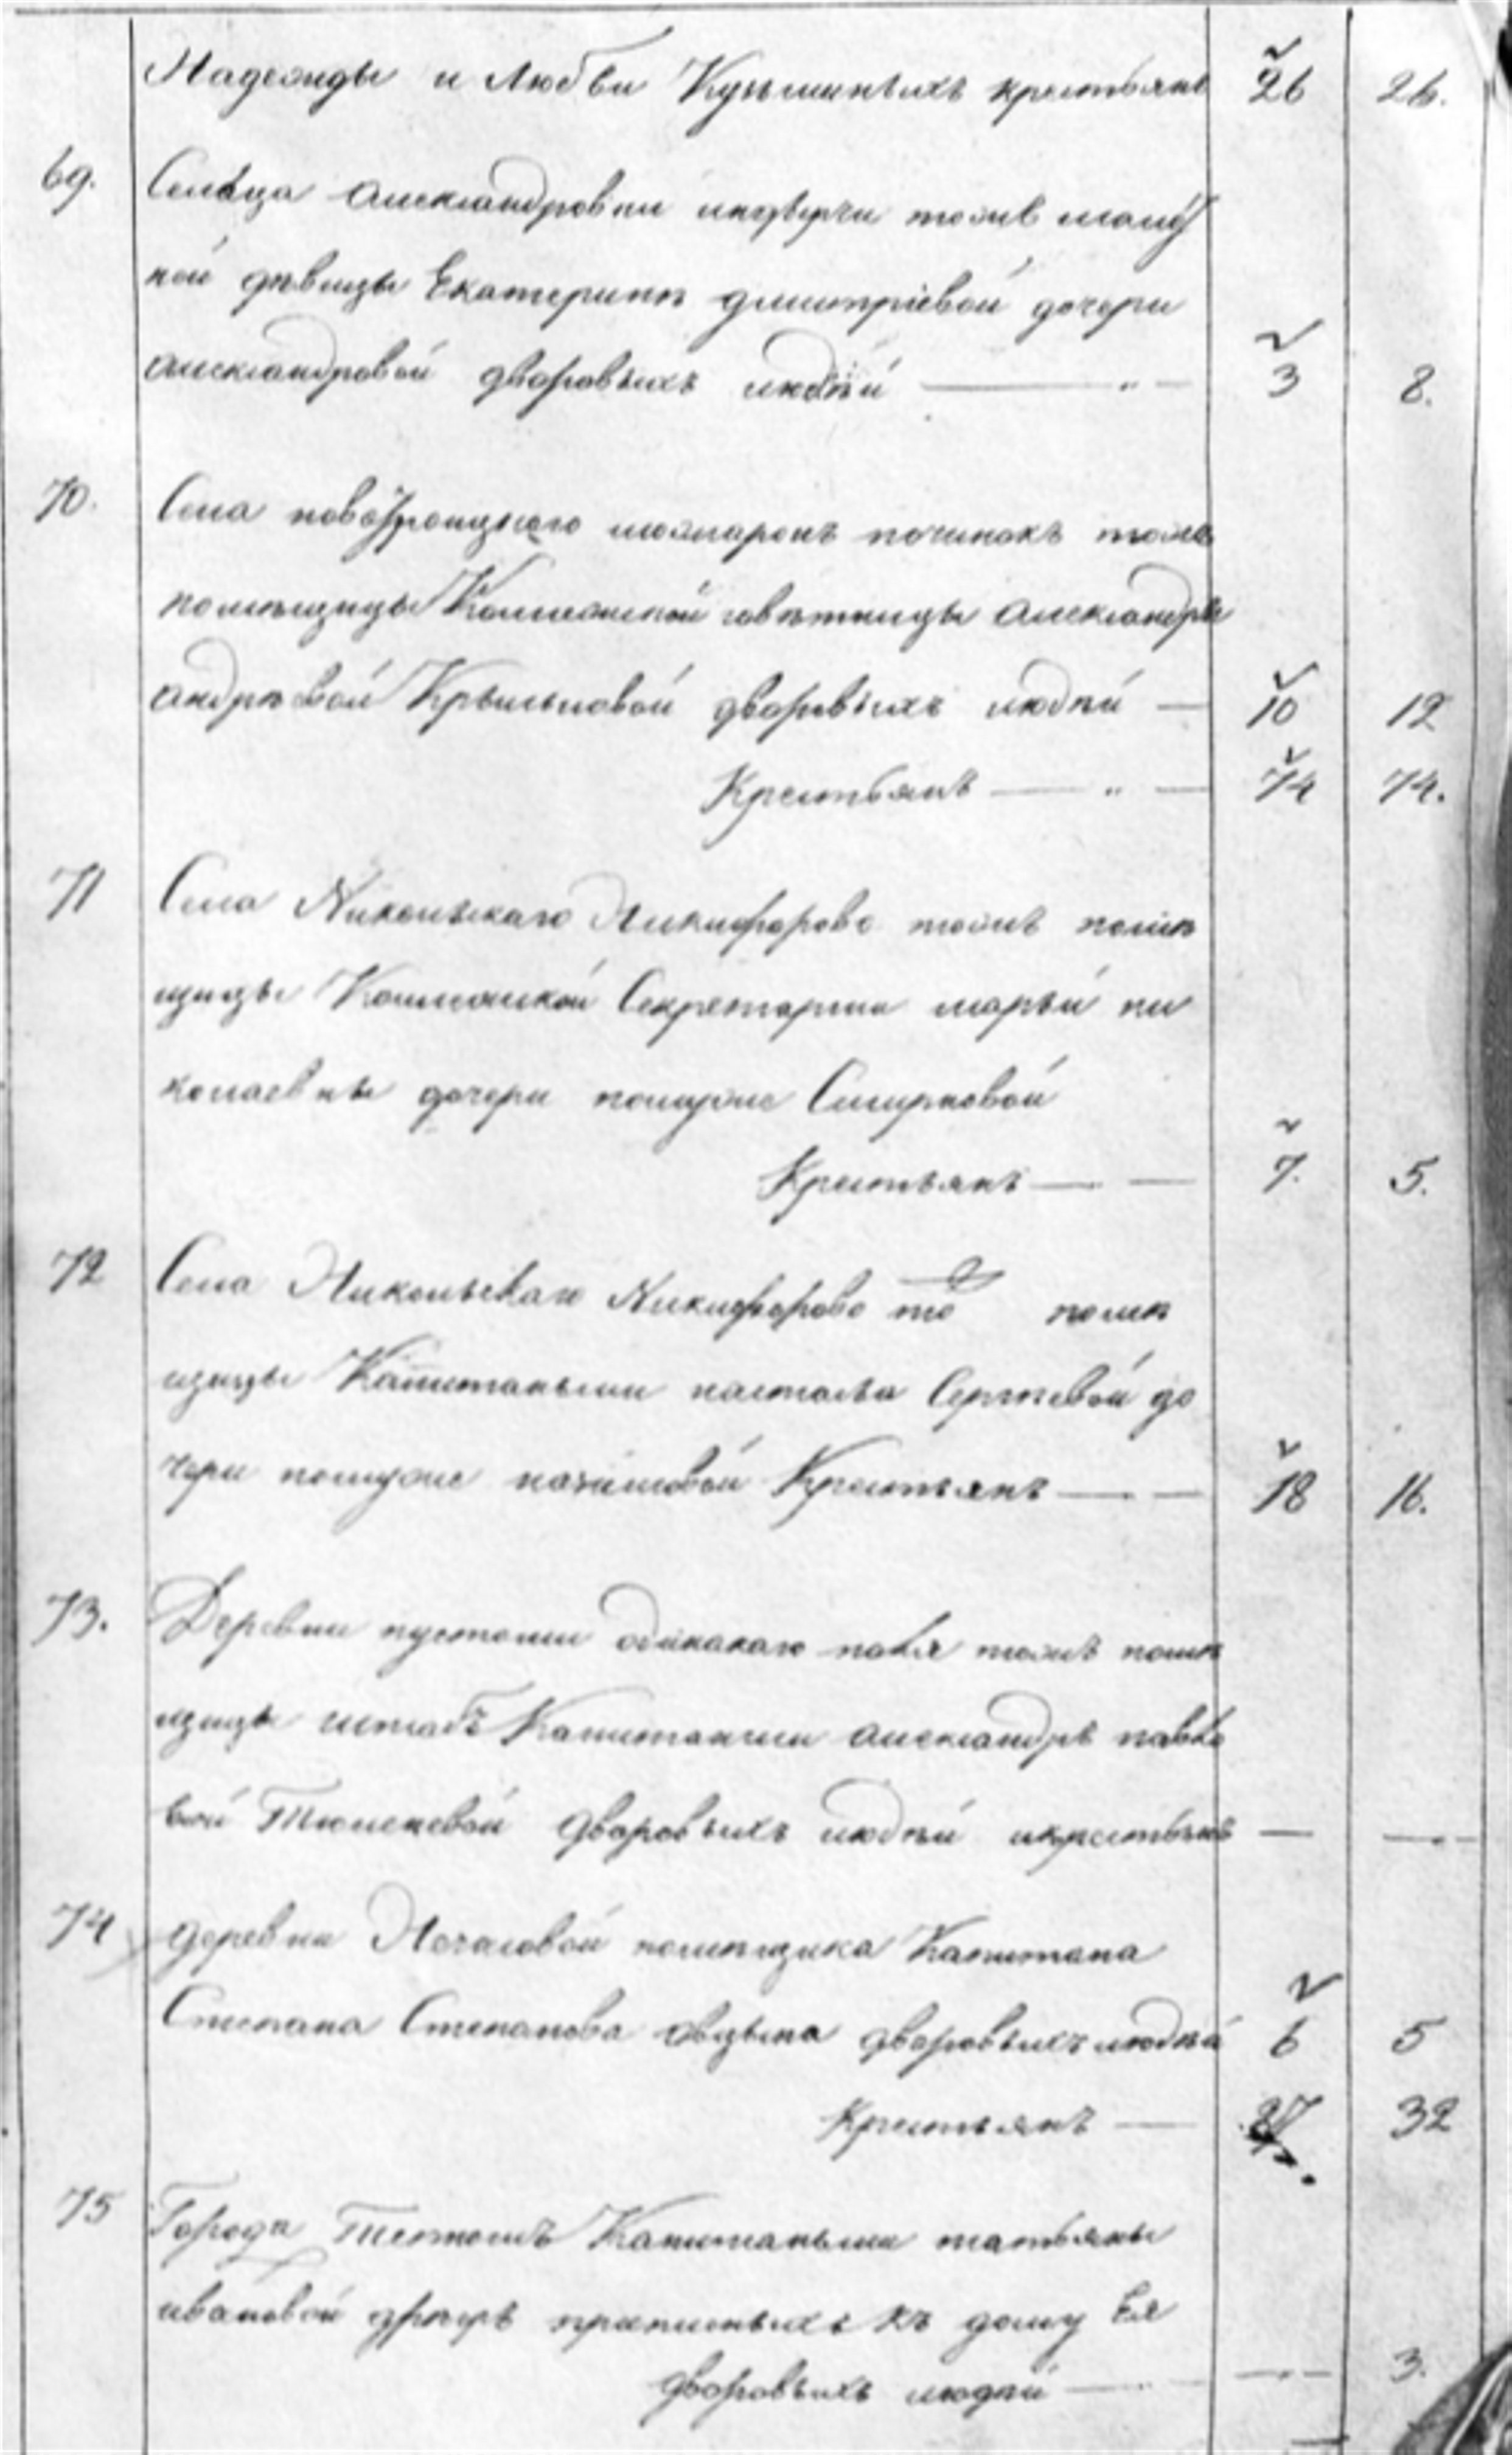 Надежды и Любви Куныминыхъ крестьянъ 26 26.
69. Сельца Александровки тожъ
ной дѣвицы Екатерины Дмитріевой дочери
Александровой дворовыхъ людѣй — " — 3 8.
70. Села починокъ тожъ
помѣщицы совѣтницы Александры
Андрѣевой Крыльцовой дворовыхъ людѣй — 10 12
Крестьянъ — " — 74 74.
71 Села Никольскаго Никифорово тожъ помѣ
щицы Секретарши Марьи Ни
колаевны дочери помужие Смирновой
Крестьянъ — — 7. 5.
72 Села Никольскаго Никифорово то помѣ
щицы Капитаньши Настасьи Сергѣевой до
чери помужие Крестьянъ — — 18 16.
73. Деревни пустоши поля тожъ помѣ
щицы штабъ Капитанши Александръ Павло
вой дворовыхъ людѣй икрестьянъ — —
74 деревни Нечасовой помѣщика Капитана
Степана Степанова дворовыхъ людѣй 6 5
Крестьянъ — 27 32
75 Города Тетюшъ Капитаньши Татьяны
Ивановой приписныхъ къ дому Ея
дворовыхъ людѣй — — 3.